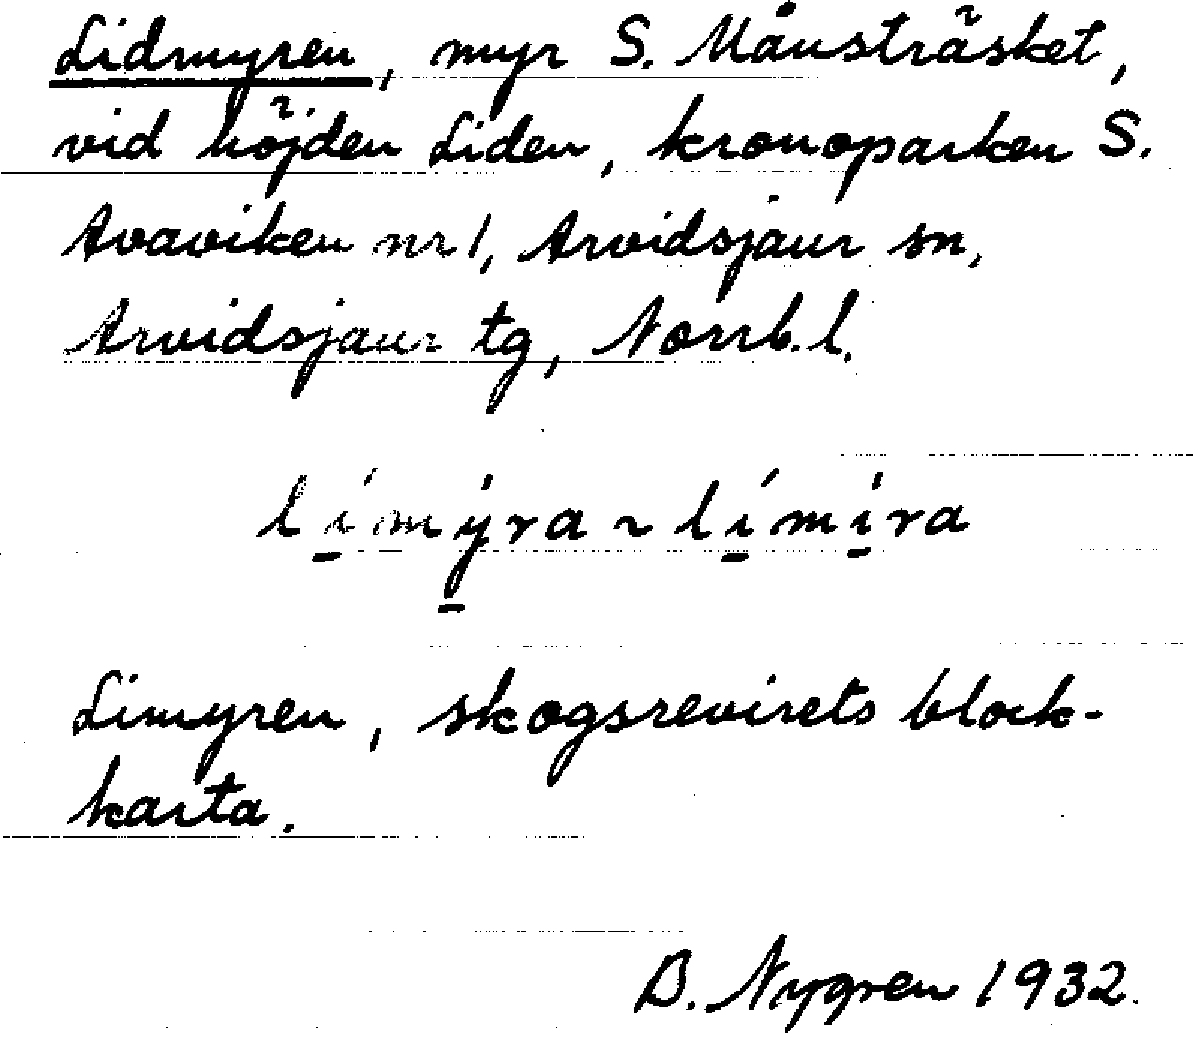 Lidmyren, myr S. Månsträsket,
vid höjden Liden, kronoparken S.
Avaviken nr 1, Arvidsjaur sn,
Arvidsjaur tg, Norrb. l.
lí̱mý̱ra ~ lí̱mí̱ra
Limyren, skogsrevirets block-
karta.
B. Nygren 1932.